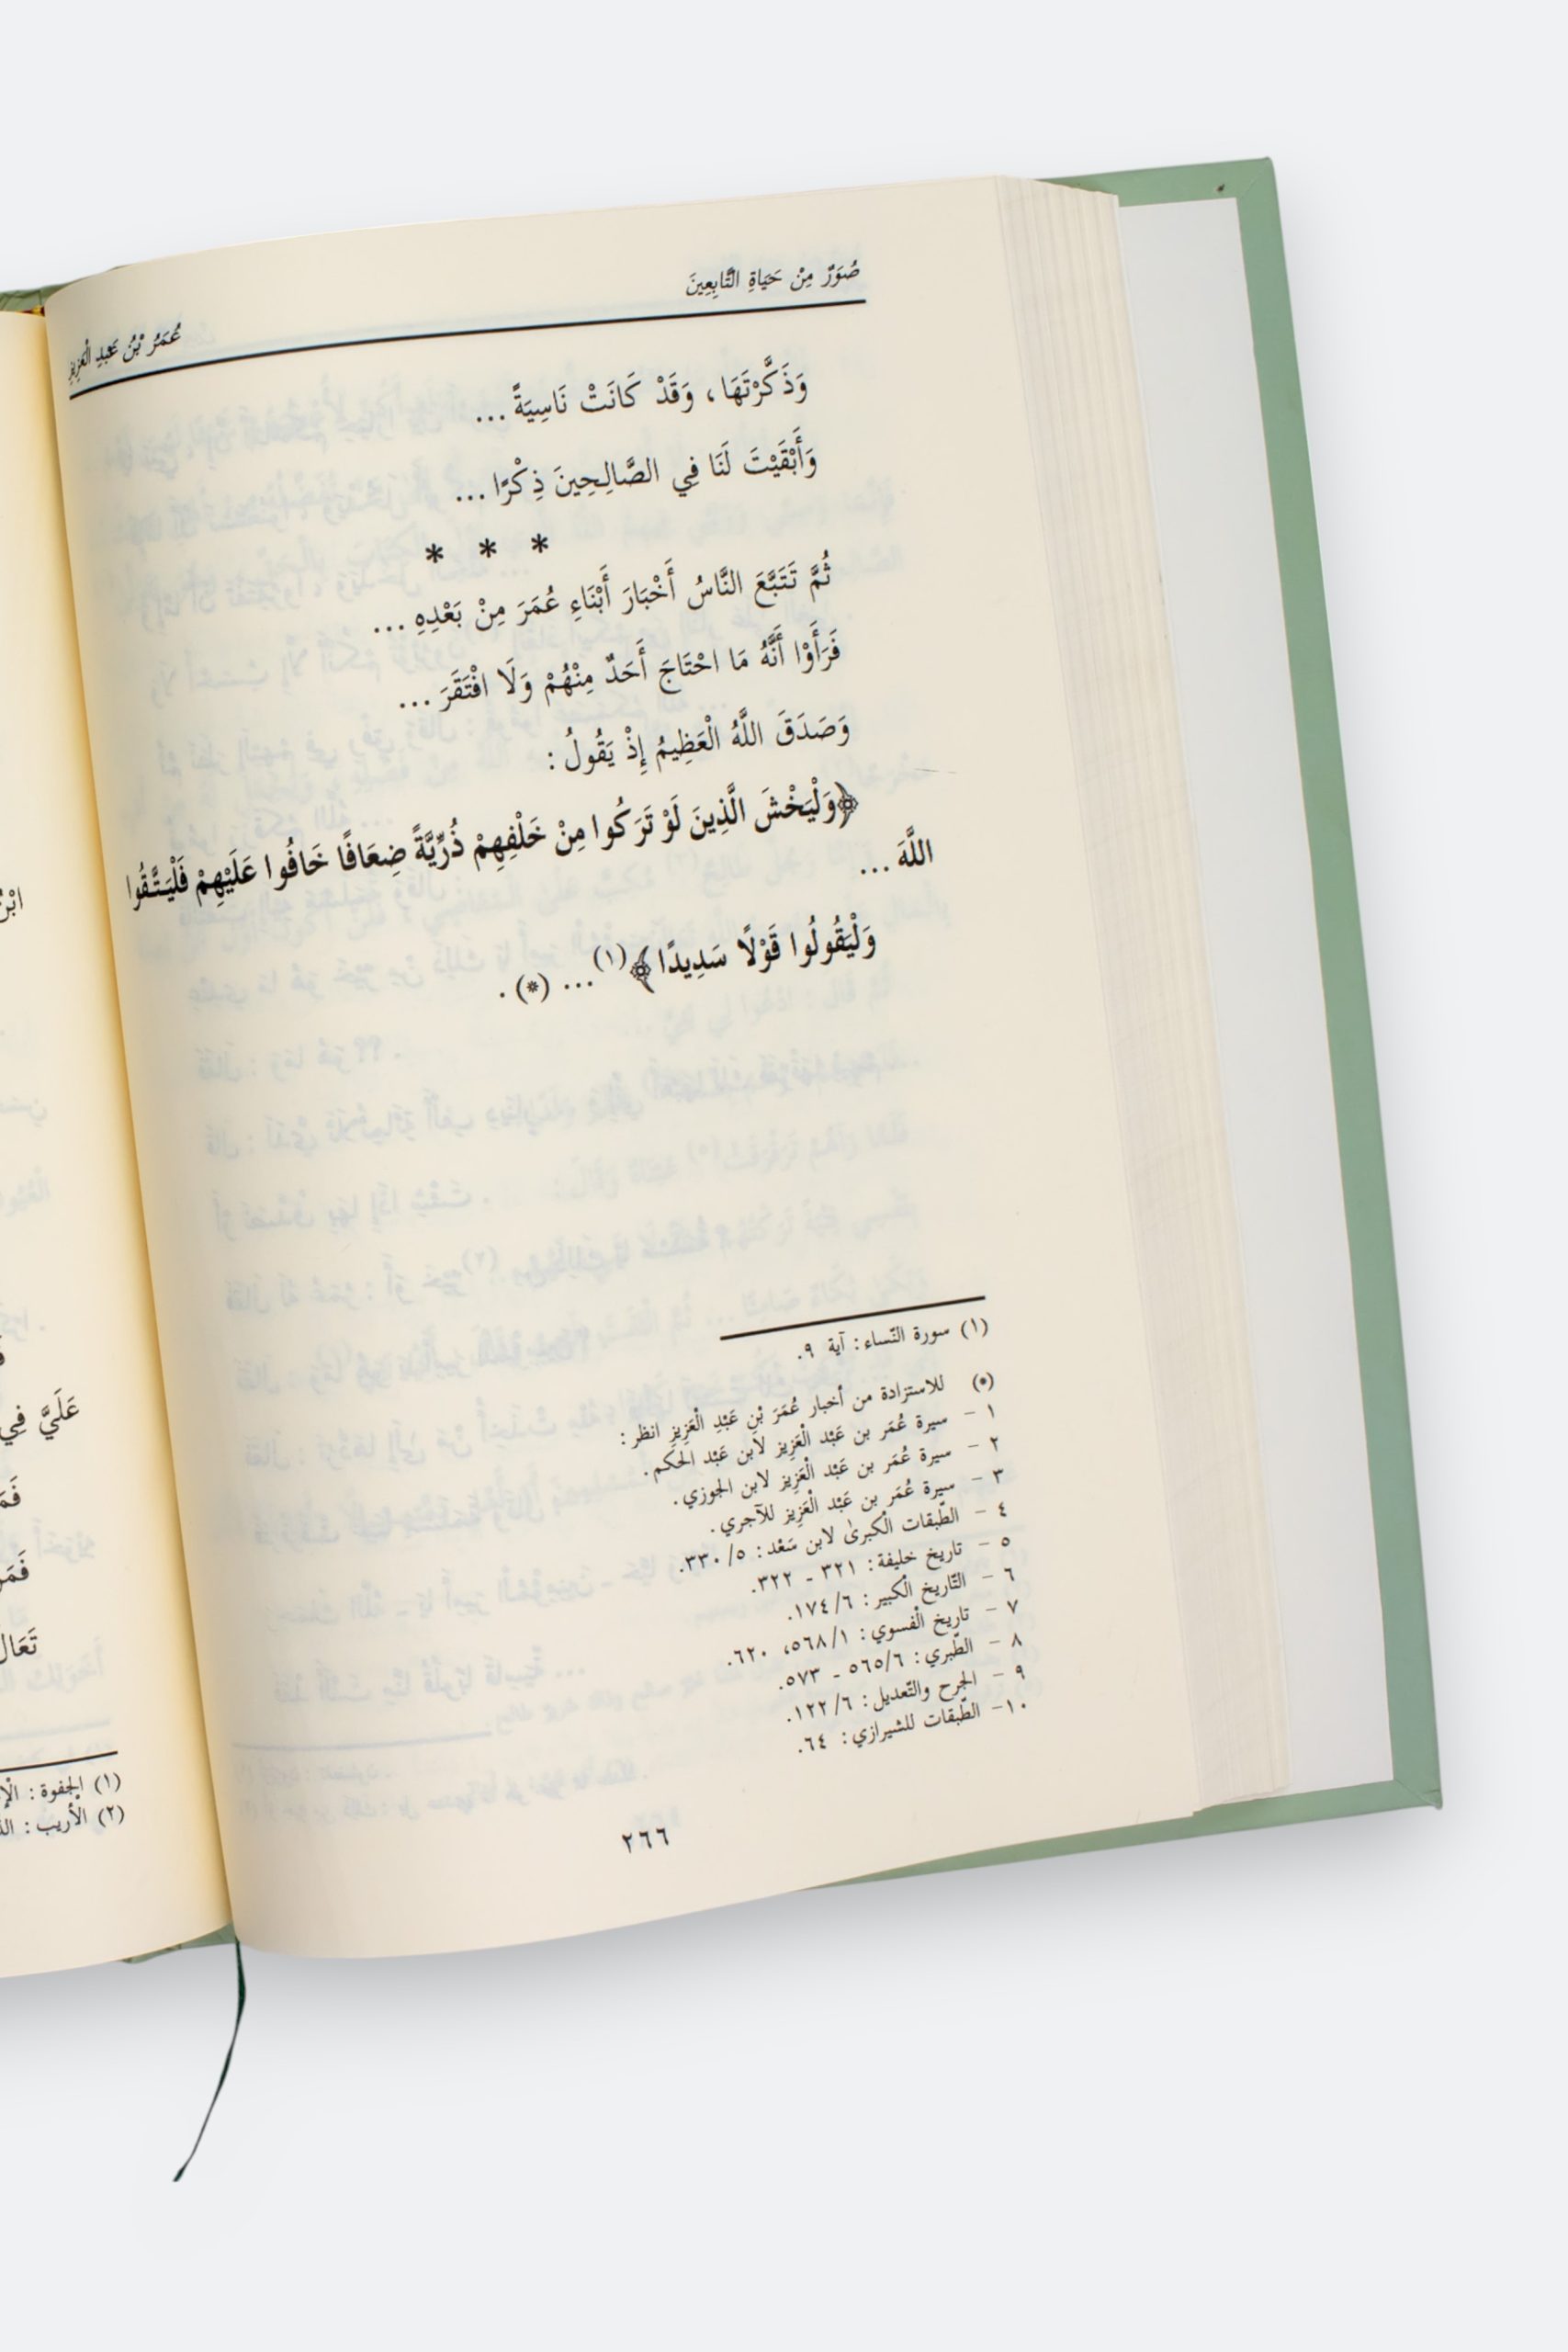 صُوَرٌ مِنْ حَيَاةِ التَّابِعِينَ
عُمَرُ بْنُ عَبْدِ الْعَزِيزِ
وَذَكَّرْتَهَا ، وَقَدْ كَانَتْ نَاسِيَةً ...
وَأَبْقَيْتَ لَنَا فِي الصَّالِحِينَ ذِكْرًا ...
* * *
ثُمَّ تَتَبَّعَ النَّاسُ أَخْبَارَ أَبْنَاءِ عُمَرَ مِنْ بَعْدِهِ ...
فَرَأَوْا أَنَّهُ مَا احْتَاجَ أَحَدٌ مِنْهُمْ وَلَا افْتَقَرَ ...
وَصَدَقَ اللَّهُ الْعَظِيمُ إِذْ يَقُولُ :
﴿وَلْيَخْشَ الَّذِينَ لَوْ تَرَكُوا مِنْ خَلْفِهِمْ ذُرِّيَّةً ضِعَافًا خَافُوا عَلَيْهِمْ فَلْيَتَّقُوا
اللَّهَ ...
وَلْيَقُولُوا قَوْلًا سَدِيدًا﴾(١) ... (*) .
(١) سورة النّساء: آية ٩.
(*) للاستزادة من أخبار عُمَرَ بْنِ عَبْدِ الْعَزِيزِ انظر:
١ - سيرة عُمَر بن عَبْد الْعَزِيز لابن عَبْد الحكم.
٢ - سيرة عُمَر بن عَبْد الْعَزِيز لابن الجوزي.
٣ - سيرة عُمَر بن عَبْد الْعَزِيز للآجري.
٤ - الطّبقات الْكبرىٰ لابن سَعْد: ٥/ ٣٣٠.
٥ - تاريخ خليفة: ٣٢١ - ٣٢٢.
٦ - التّاريخ الْكبير: ٦/ ١٧٤.
٧ - تاريخ الْفسوي: ١/ ٥٦٨، ٦٢٠.
٨ - الطّبري: ٦/ ٥٦٥ - ٥٧٣.
٩ - الجرح والتّعديل: ٦/ ١٢٢.
١٠- الطّبقات للشيرازي: ٦٤.
٢٦٦
عَلَيَّ فِي
(١) الجفوة:
(٢) الأريب: